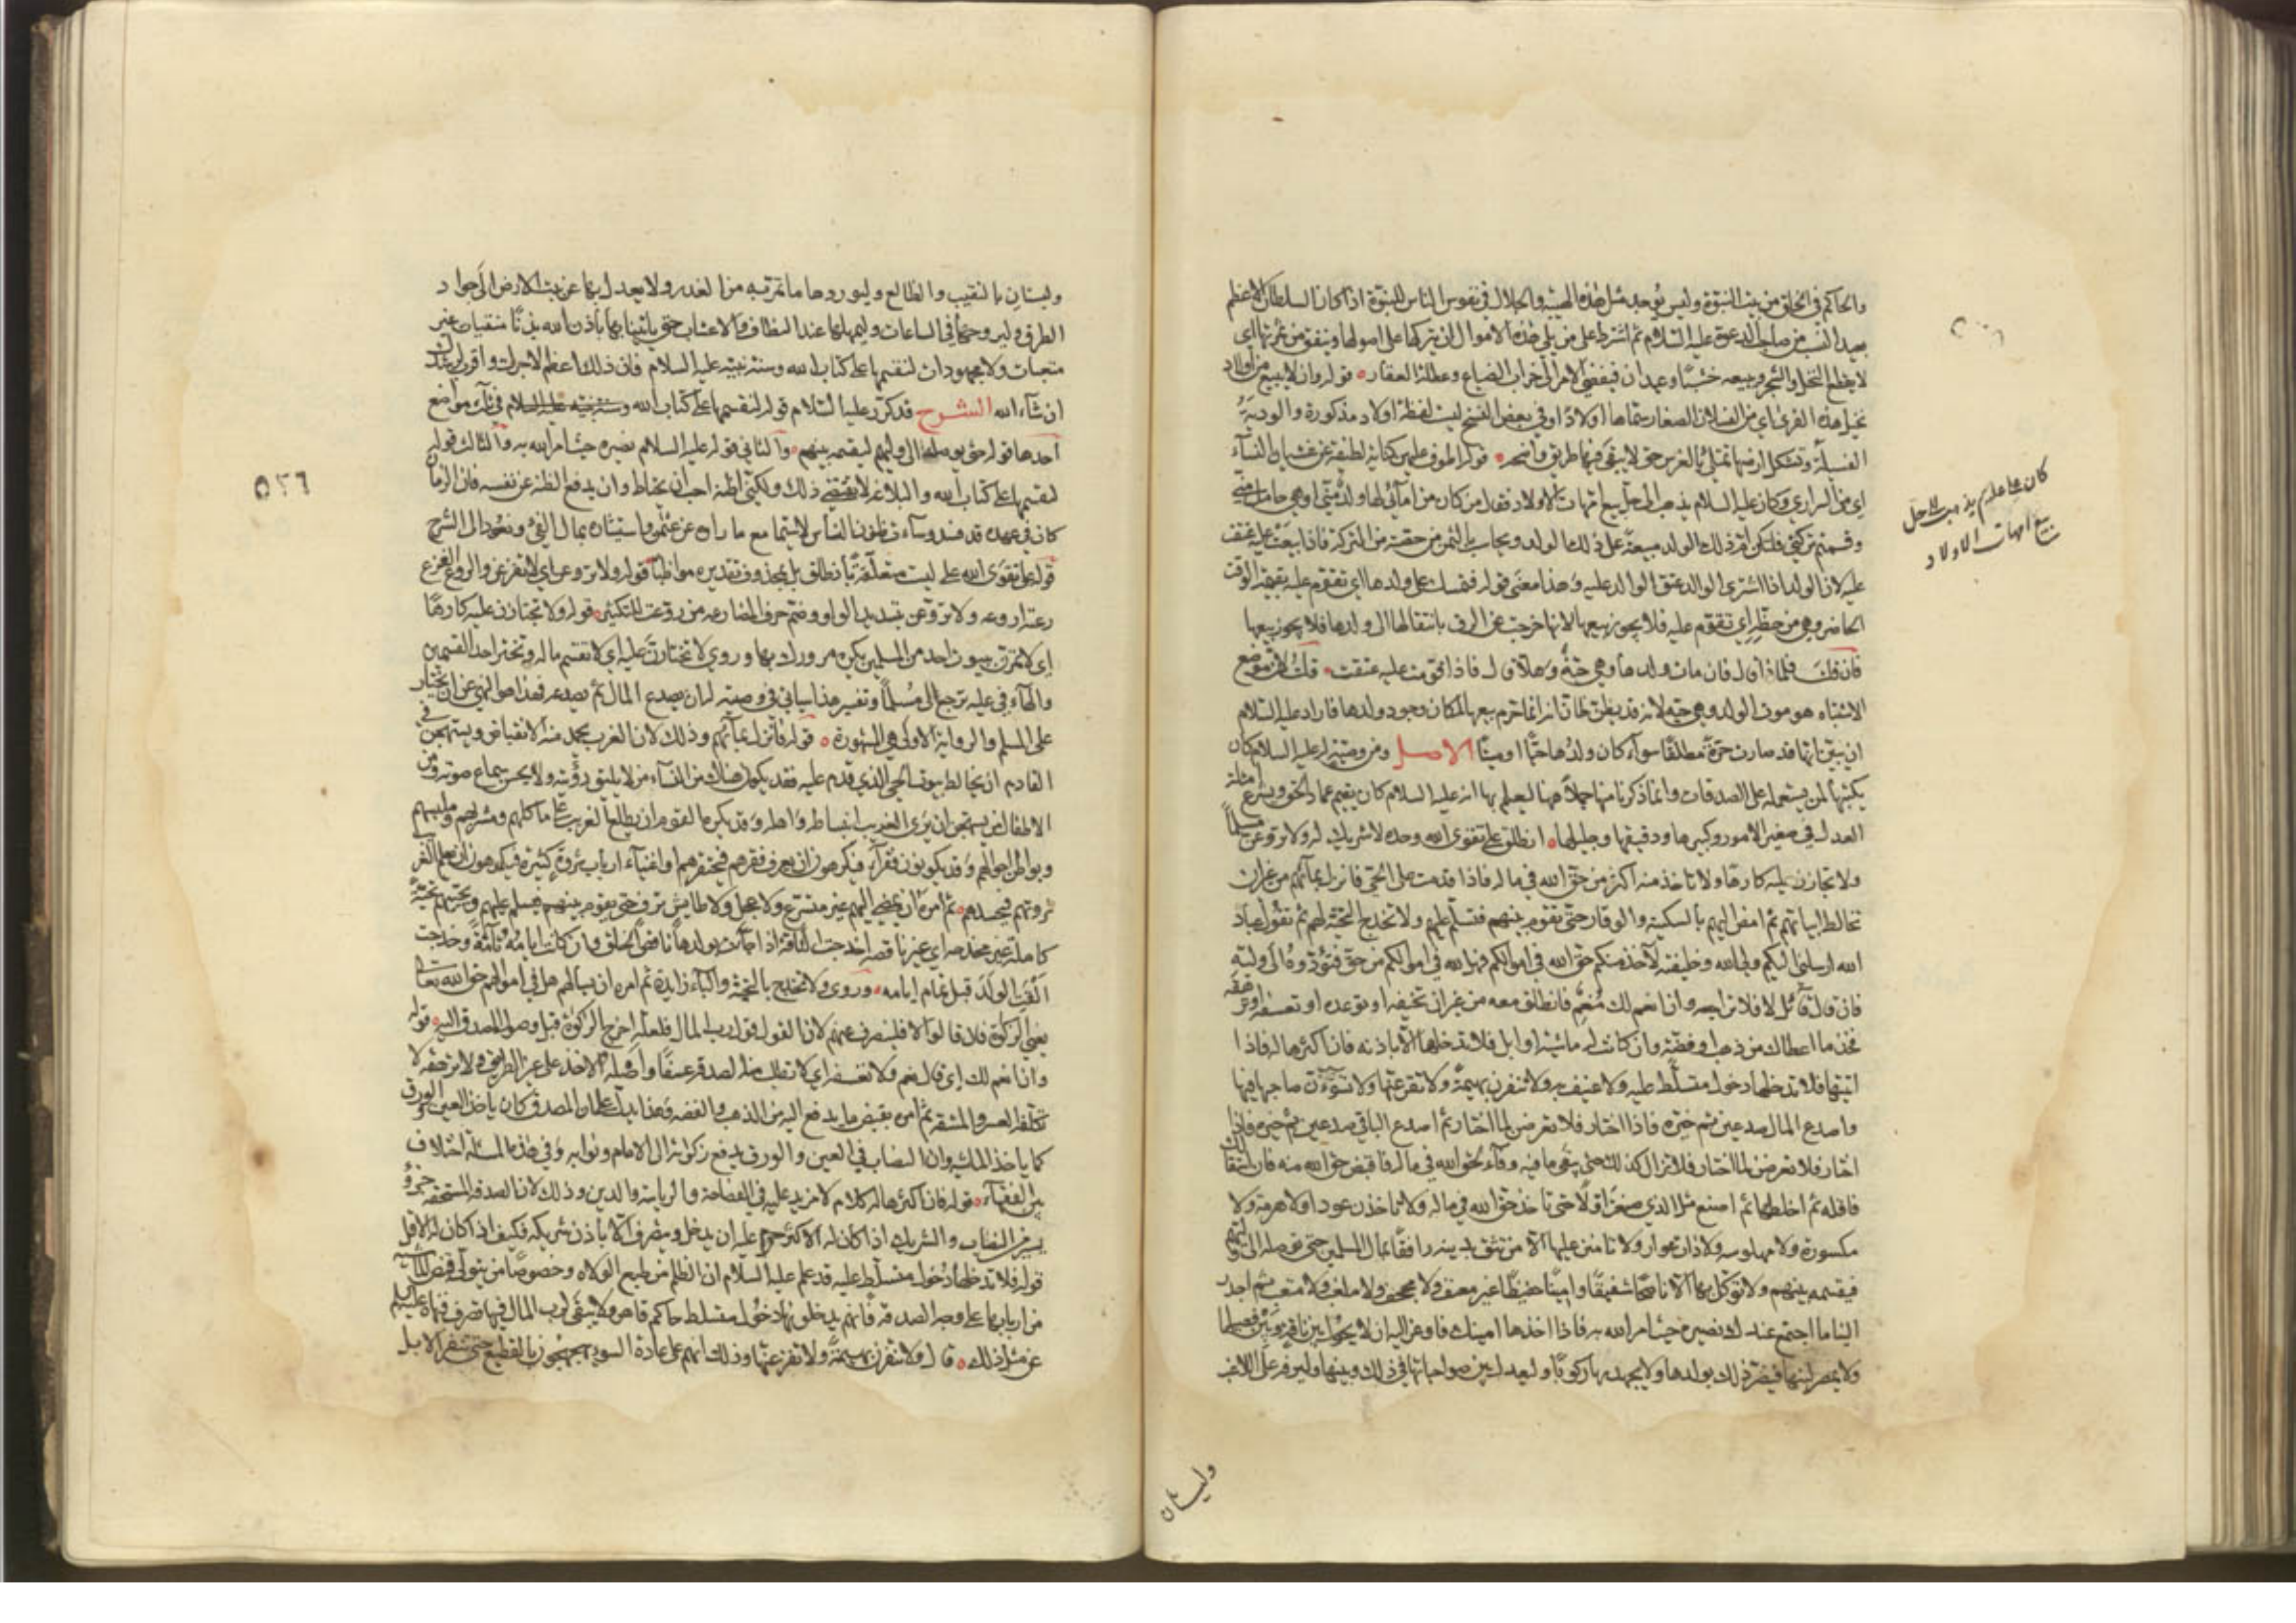 والحاكم في الخلق من بيت النبوة وليس يوجد مثل هذه الهيبة والجلال في نفوس الناس للنبوة اذا كان السلطان الاعظم
بعيد النسب من صاحب الدعوة عليه السلام ثم اشترط على من يلي هذه الاموال ان يتركها على اصولها وينفق من ثمرتها اي
لا يقطع النخل والثمر ويبيعه خشبا وعيدانا فيفضي الامر الى خراب الضياع وعطلة العقار قوله وان لا يبيع من اولاد
نخيل هذه القرى اي من الفسلان الصغار سماها اولادا وفي بعض النسخ ليست لفظة اولاد مذكورة والودية
الفسيلة وتشكل ارضها تمتلئ بالغرس حتى لا يبقى فيها طريق واضحة قوله اطوف عليهن كناية لطيفة عن غشيان النساء
اي من السراري وكان عليه السلام يذهب الى حل بيع امهات الاولاد فقال من كان من امائي لها ولد مني او هي حامل مني
وقسمتم تركتي فلتكن ام ذلك الولد مبيعة على ذلك الولد ويحاسب بالثمن من حصته من التركة فاذا بيعت عليه عتقت
عليه لان الولد اذا اشترى الوالد عتق الوالد عليه وهذا معنى قوله فتمسك على ولدها اي تقوم عليه بقيمة الوقت
الحاضر وهي من حظه اي تقوم عليه فلا يجوز بيعها لانها خرجت عن الرق بانتقالها الى ولدها فلا يجوز بيعها
فان قلت فلماذا قال فان مات ولدها وهي حية وهلا قال فاذا قومت عليه عتقت قلت لان موضع
الاشتباه هو موت الولد وهي حية لانه قد يظن ظان انه انما حرم بيعها لمكان وجود ولدها فاراد عليه السلام
ان يبين انها قد صارت حرة مطلقا سواء كان ولدها حيا او ميتا الاصل ومن وصية له عليه السلام كان
يكتبها لمن يستعمله على الصدقات وانما ذكرنا منها جملا هنا ليعلم بها انه عليه السلام كان يقيم عماد الحق ويشرع امثلة
العدل في صغير الامور وكبيرها ودقيقها وجليلها انطلق على تقوى الله وحده لا شريك له ولا تروعن مسلما
ولا تجتازن عليه كارها ولا تاخذ منه اكثر من حق الله في ماله فاذا قدمت على الحي فانزل بمائهم من غير ان
تخالط ابياتهم ثم امض اليهم بالسكينة والوقار حتى تقوم بينهم فتسلم عليهم ولا تخدج التحية لهم ثم تقول عباد
الله ارسلني اليكم ولي الله وخليفته لآخذ منكم حق الله في اموالكم فهل لله في اموالكم من حق فتؤدوه الى وليه
فان قال قائل لا فلا تراجعه وان انعم لك منعم فانطلق معه من غير ان تخيفه او توعده او تعسفه او ترهقه
فخذ ما اعطاك من ذهب او فضة وان كانت له ماشية او ابل فلا تدخلها الا باذنه فان اكثرها له فاذا
اتيتها فلا تدخلها دخول متسلط عليه ولا عنيف به ولا تنفرن بهيمة ولا تفزعنها ولا تسوءن صاحبها فيها
واصدع المال صدعين ثم خيره فاذا اختار فلا تعرضن لما اختار ثم اصدع الباقي صدعين ثم خيره فاذا
اختار فلا تعرضن لما اختار فلا تزال كذلك حتى يبقى ما فيه وفاء لحق الله في ماله فاقبض حق الله منه فان استقالك
فاقله ثم اخلطها ثم اصنع مثل الذي صنعت اولا حتى تاخذ حق الله في ماله ولا تاخذن عودا ولا هرمة ولا
مكسورة ولا مهلوسة ولا ذات عوار ولا تامنن عليها الا من تثق بدينه رافقا بمال المسلمين حتى توصله الى وليهم
فيقسمه بينهم ولا توكل بها الا ناصحا شفيقا وامينا حفيظا غير معنف ولا مجحف ولا ملغب ولا متعب ثم احدر
الينا ما اجتمع عندك نصيره حيث امر الله به فاذا اخذها امينك فاوعز اليه ان لا يحول بين ناقة وبين فصيلها
ولا يمصر لبنها فيضر ذلك بولدها ولا يجهدنها ركوبا وليعدل بين صواحباتها في ذلك وبينها وليرفه على اللاغب
كان ع عليلم يذهب الى حل
بيع امهات الاولاد
وليستان
وليستان بالنقب والظالع وليوردها ما تمر به من الغدر ولا يعدل بها عن نبت الارض الى جواد
الطرق وليروحها في الساعات وليمهلها عند النطاف والاعشاب حتى ياتينا بها باذن الله بدنا منقيات غير
متعبات ولا مجهودات لنقسمها على كتاب الله وسنة نبيه عليه السلام فان ذلك اعظم لاجرك واقرب لرشدك
ان شاء الله الشرح قد كرر عليه السلام قوله لنقسمها على كتاب الله وسنة نبيه عليه السلام في ثلاث مواضع
احدها قوله حتى يوصله الى وليهم ليقسمه بينهم والثاني قوله عليه السلام نصيره حيث امر الله به والثالث قوله
لنقسمها على كتاب الله والبلاغة لا تقتضي ذلك ولكني اظنه احب ان يحتاط وان يدفع الظنة عن نفسه فان الزمان
كان في عهده قد فسد وساءت ظنون الناس لا سيما مع ما راه من عثمان واستيثاره بمال الفئ ونعود الى الشرح
قوله على تقوى الله على ليست متعلقة بانطلق بل بمحذوف تقديره مواظبا قوله ولا تروعن اي لا تفزعن والروع الفزع
رعته اروعه ولا تروعن بتشديد الواو وضم حرف المضارعة من روعت للتكثير قوله ولا تجتازن عليه كارها
اي لا تمرن ببيوت احد من المسلمين يكره مرورك بها وروي لا تختارن عليه اي لا تقسم ماله وتختر احد القسمين
والهاء في عليه ترجع الى مسلما وتفسير هذا سياتي في وصيته له ان يصدع المال ثم يصدعه فهذا هو النهي عن ان يختار
على المسلم والرواية الاولى هي المشهورة قوله فانزل بمائهم وذلك لان الغريب يحمد منه الانقباض ويستهجن في
القادم ان يخالط بيوت الحي الذي قدم عليه فقد يكون هناك من النساء من لا يليق رؤيته ولا يحسن سماع صوته ومن
الاطفال من يستهجن ان يرى الغريب انبساطه واهله وقد يكره القوم ان يطلع الغريب على ماكلهم ومشربهم وملبسهم
وبواطن احوالهم وقد يكونون فقراء فيكرهون ان يعرف فقرهم فيحتقرهم او اغنياء ارباب ثروة كثيرة فيكرهون ان يعلم الغريب
ثروتهم فيحسدهم ثم امره ان يمضي اليهم غير متسرع ولا عجل ولا طايش نزق حتى يقوم بينهم فيسلم عليهم ويحييهم تحية
كاملة غير مخدجة اي غير ناقصة اخدجت الناقة اذا جاءت بولدها ناقص الخلق وان كانت ايامه تامة وخدجت
القت الولد قبل تمام ايامه وروي ولا تخدج بالتحية والباء زايدة ثم امره ان يسالهم هل في اموالهم حق الله تعالى
يعني الزكوة فان قالوا لا فلينصرف عنهم لان القول قول رب المال فلعله اخرج الزكوة قبل وصول المصدق اليه قوله
وان انعم لك اي قال نعم ولا تعسفه اي لا تطلب منه الصدقة عسفا واصله الاخذ على غير الطريق ولا ترهقه لا
تكلفه العسر والمشقة ثم امره بقبض ما يدفع اليه من الذهب والفضة وهذا يدل على ان المصدق كان ياخذ العين والورق
كما ياخذ الماشية وان النصاب في العين والورق يدفع زكوته الى الامام ونوابه وفي هذه المسئلة اختلاف
بين الفقهاء قوله فان اكثرها له كلام لا مزيد عليه في الفصاحة والرياسة والدين وذلك لان الصدقة المستحقة جزؤ
يسير من النصاب والشريك اذا كان له الاكثر حرم عليه ان يدخل ويتصرف الا باذن شريكه فكيف اذا كان له الاقل
قوله فلا تدخلها دخول متسلط عليه قد علم عليه السلام ان الظلم من طبع الولاة وخصوصا من يتولى قبض الماشية
من اربابها على وجه الصدقة فانهم يدخلونها دخول متسلط حاكم قاهر ولا يبقى لرب المال فيها تصرف فنهاه عليه السلام
عن مثل ذلك قال ولا تنفرن بهيمة ولا تفزعنها وذلك انهم على عادة السوء يهجهجون بالقطيع حتى تنفر الابل
٥٢٦